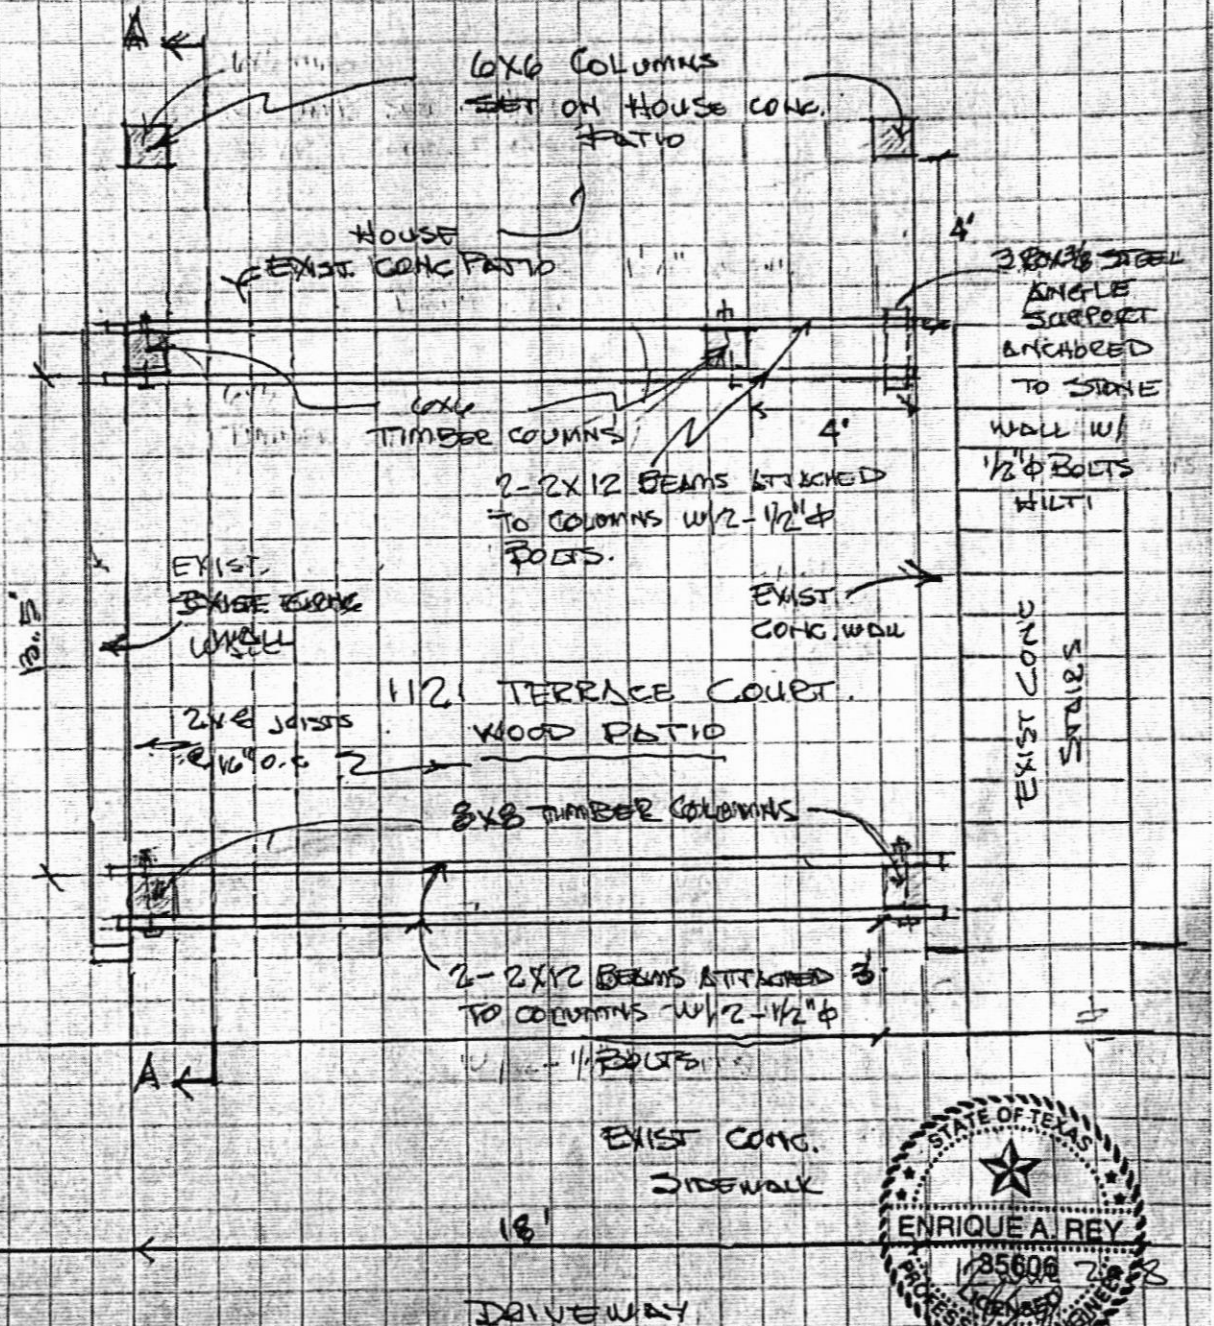 A
6X6 COLUMNS
SET ON HOUSE CONC.
PATIO
4'
HOUSE
EXIST. CONC PATIO
STEEL
ANGLE
SUPPORT
ANCHORED
TO STONE
WALL W/
1/2"φ BOLTS
HILTI
6X6
TIMBER COLUMNS
4'
2-2X12 BEAMS ATTACHED
TO COLUMNS W/2-1/2"φ
BOLTS.
EXIST.
WALL
EXIST.
CONC. WALL
EXIST CONC
STAIRS
112 TERRACE COURT.
WOOD PATIO
2X8 JOISTS
@ 16" O.C
8X8 TIMBER COLUMNS
2-2X12 BEAMS ATTACHED
TO COLUMNS W/2-1/2"φ
BOLTS
3'
A
EXIST CONC.
SIDEWALK
18'
DRIVEWAY
STATE OF TEXAS
ENRIQUE A. REY
85606
LICENSED